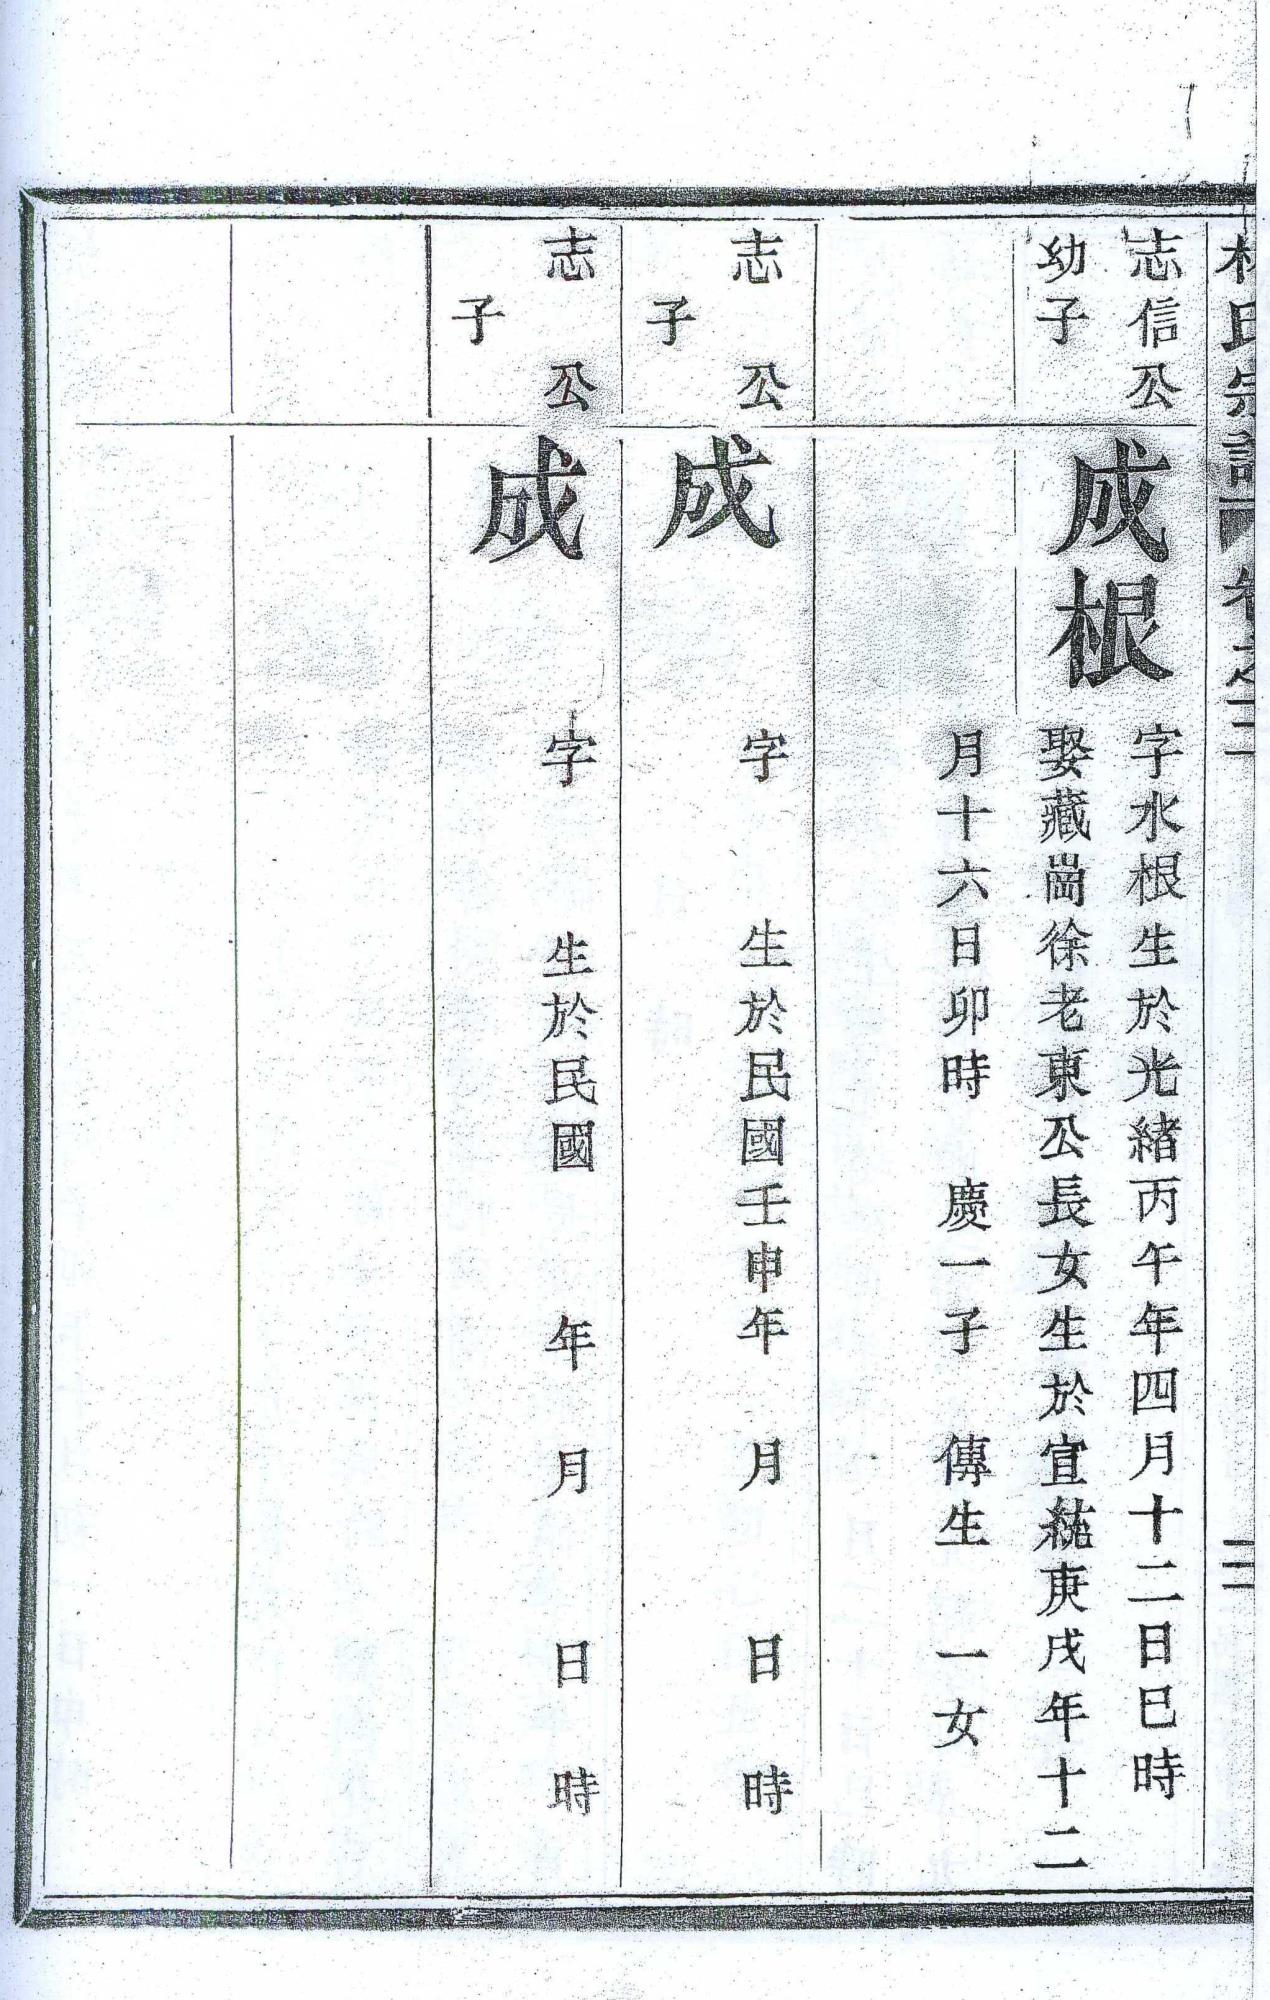 氏宗譜 卷之
志信公
幼子
成根
字水根生於光緒丙午年四月十二日巳時
娶藏崗徐老東公長女生於宣統庚戌年十二
月十六日卯時 慶一子 傳生 一女
志 公
子
成
字 生於民國壬申年 月 日 時
志 公
子
成
字 生於民國 年 月 日 時